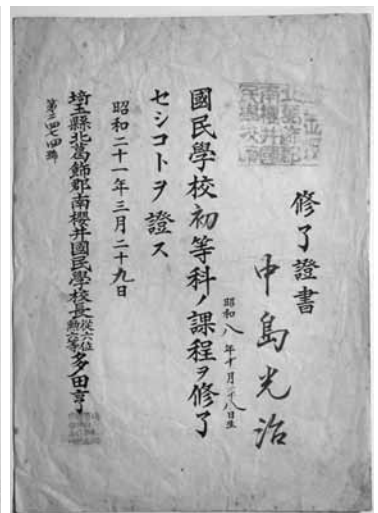 修了證書
中島光治
昭和八年十月廿八日生
國民學校初等科ノ課程ヲ修了
セシコトヲ證ス
昭和二十一年三月二十九日
埼玉縣北葛飾郡南櫻井國民學校長從六位勲六等多田亨
第二四七四號